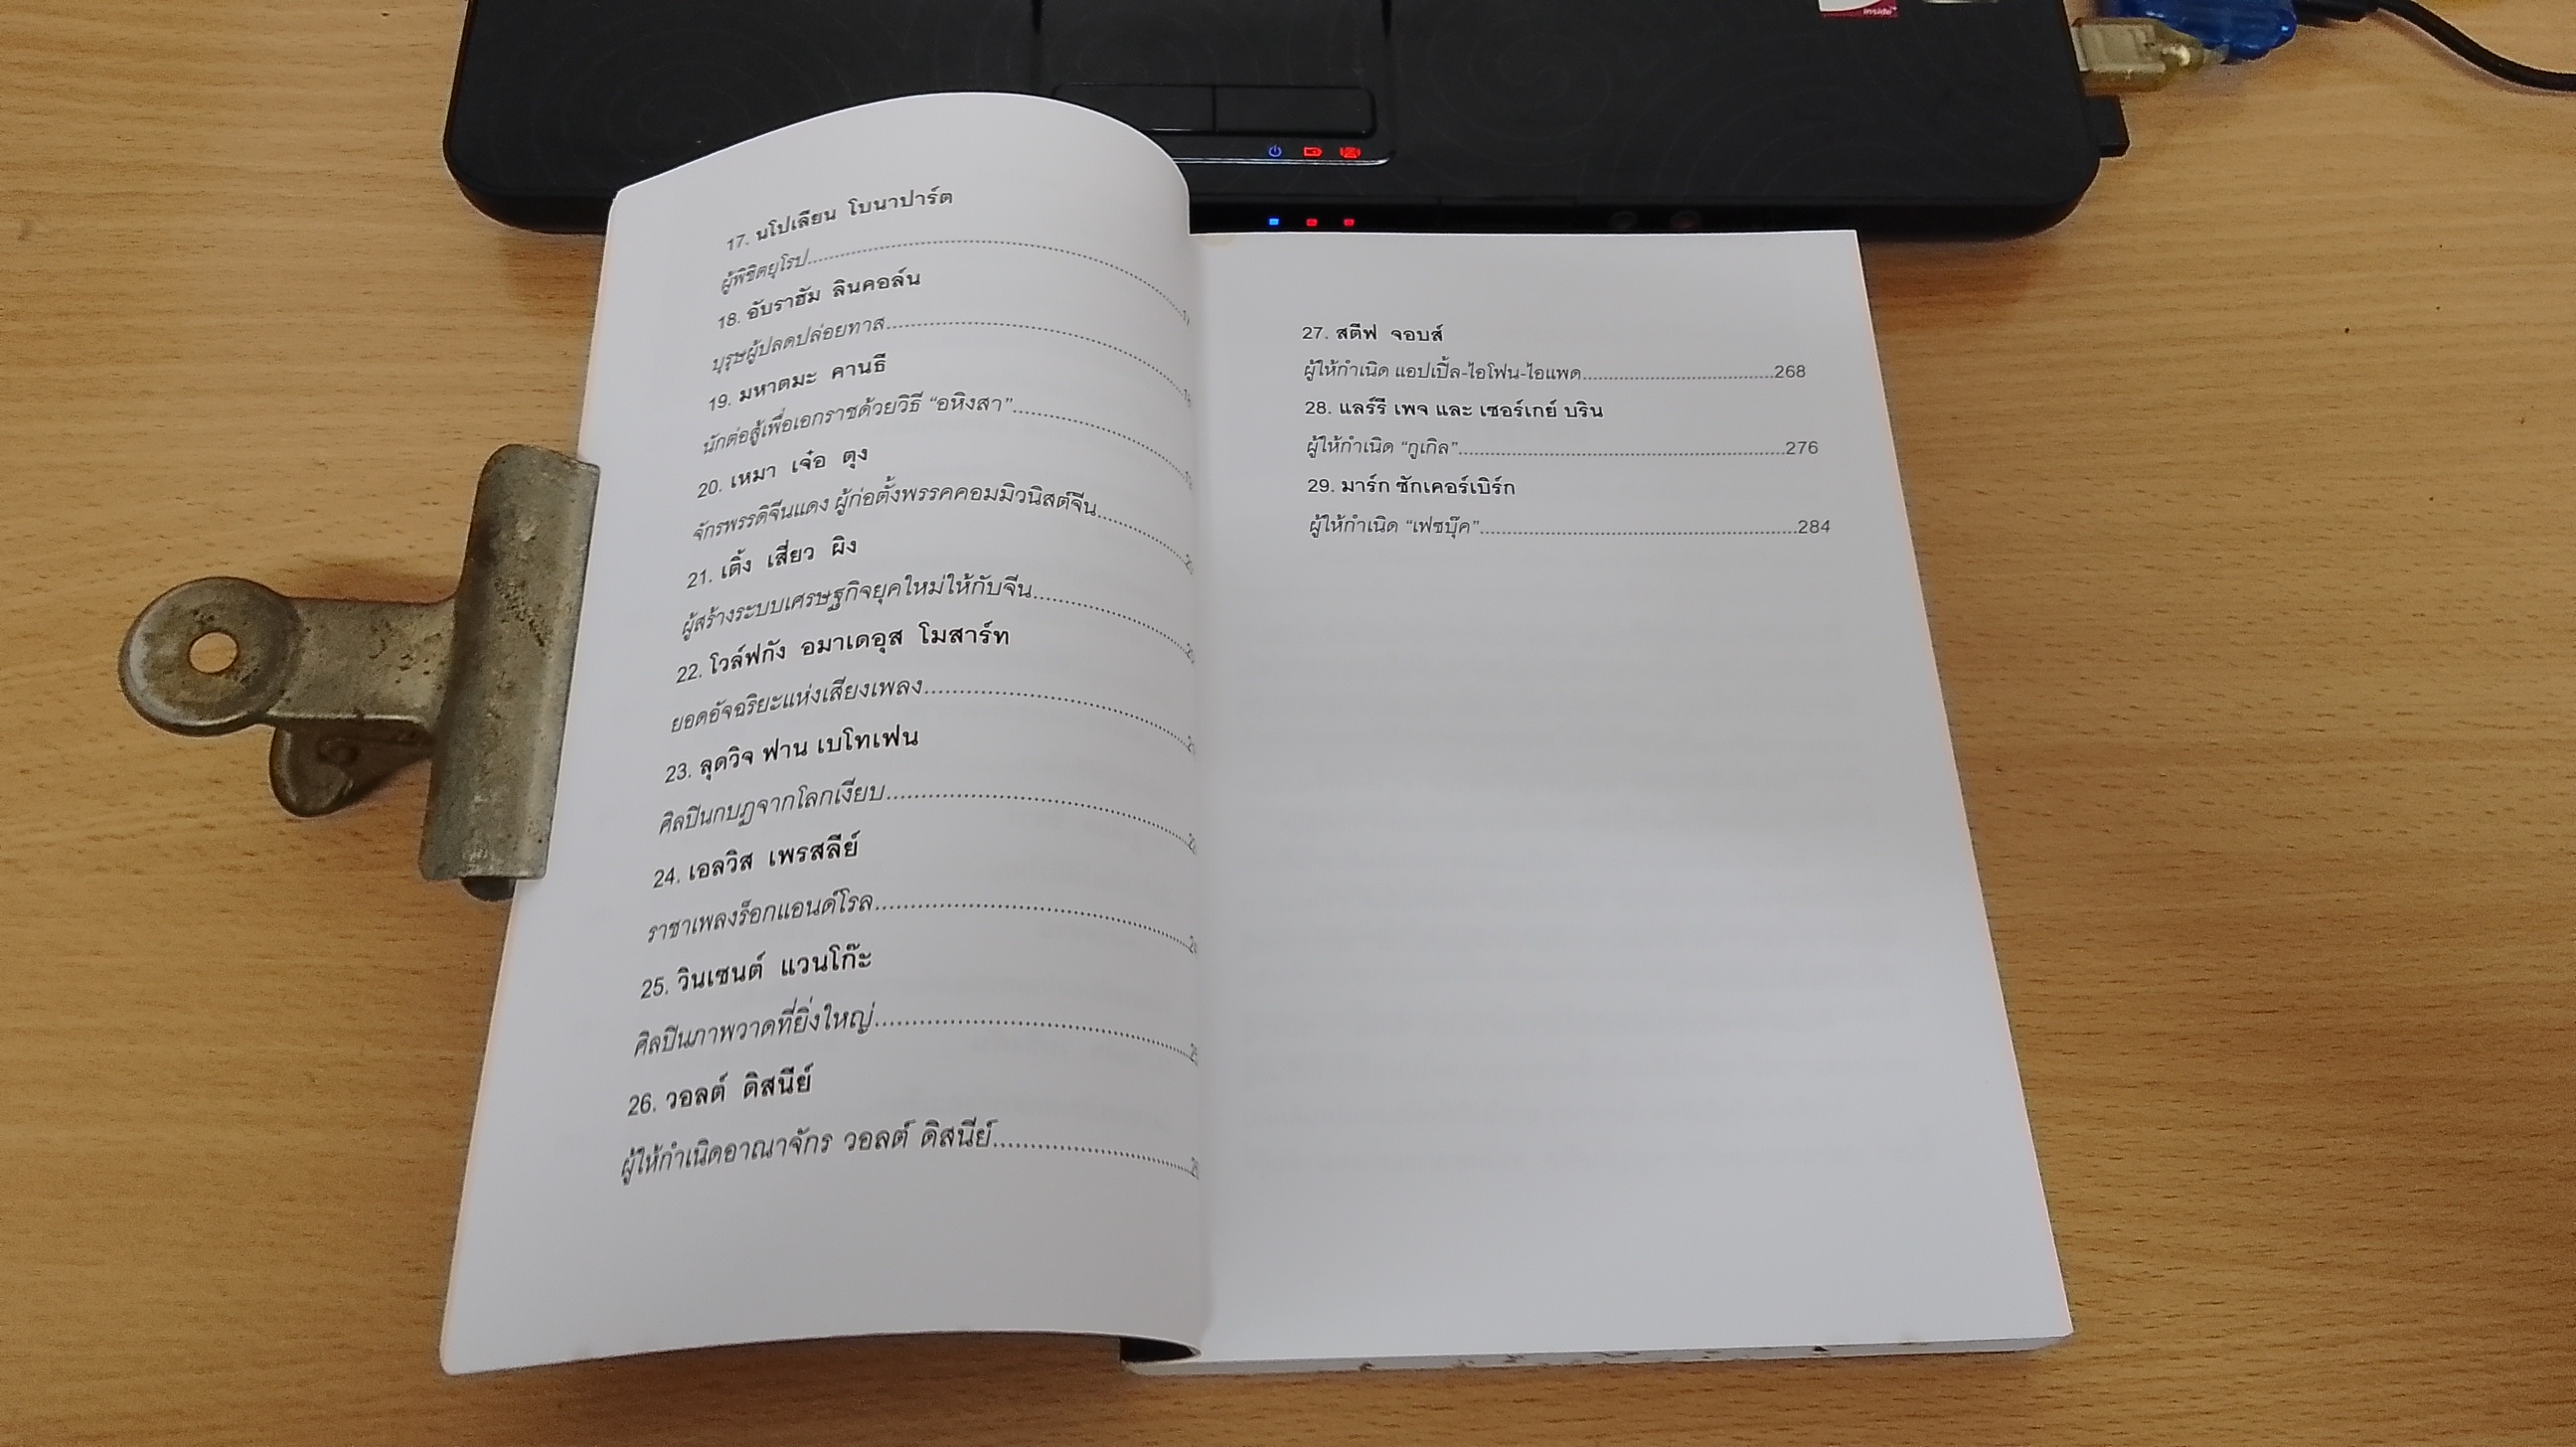 inside™
17. นโปเลียน โบนาปาร์ต
ผู้พิชิตยุโรป
18. อับราฮัม ลินคอล์น
บุรุษผู้ปลดปล่อยทาส
19. มหาตมะ คานธี
นักต่อสู้เพื่อเอกราชด้วยวิธี “อหิงสา”
20. เหมา เจ๋อ ตุง
จักรพรรดิจีนแดง ผู้ก่อตั้งพรรคคอมมิวนิสต์จีน
21. เติ้ง เสี่ยว ผิง
ผู้สร้างระบบเศรษฐกิจยุคใหม่ให้กับจีน
22. โวล์ฟกัง อมาเดอุส โมสาร์ท
ยอดอัจฉริยะแห่งเสียงเพลง
23. ลุดวิจ ฟาน เบโทเฟน
ศิลปินกบฏจากโลกเงียบ
24. เอลวิส เพรสลีย์
ราชาเพลงร็อกแอนด์โรล
25. วินเซนต์ แวนโก๊ะ
ศิลปินภาพวาดที่ยิ่งใหญ่
26. วอลต์ ดิสนีย์
ผู้ให้กำเนิดอาณาจักร วอลต์ ดิสนีย์
27. สตีฟ จอบส์
ผู้ให้กำเนิด แอปเปิ้ล-ไอโฟน-ไอแพด...268
28. แลร์รี เพจ และ เซอร์เกย์ บริน
ผู้ให้กำเนิด “กูเกิล”...276
29. มาร์ก ซักเคอร์เบิร์ก
ผู้ให้กำเนิด “เฟซบุ๊ค”...284